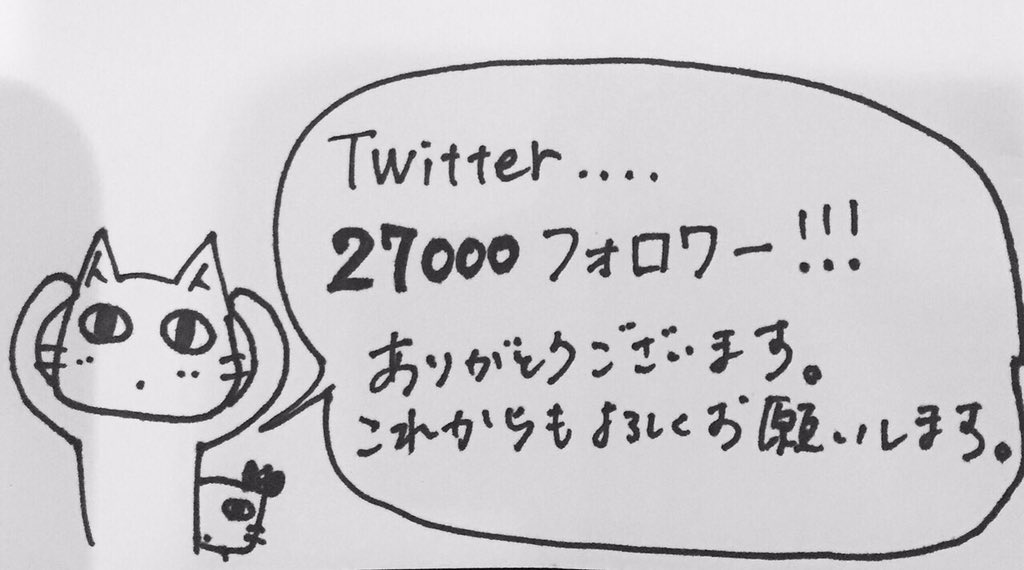 Twitter....
27000 フォロワー!!!
ありがとうございます。
これからもよろしくお願いします。